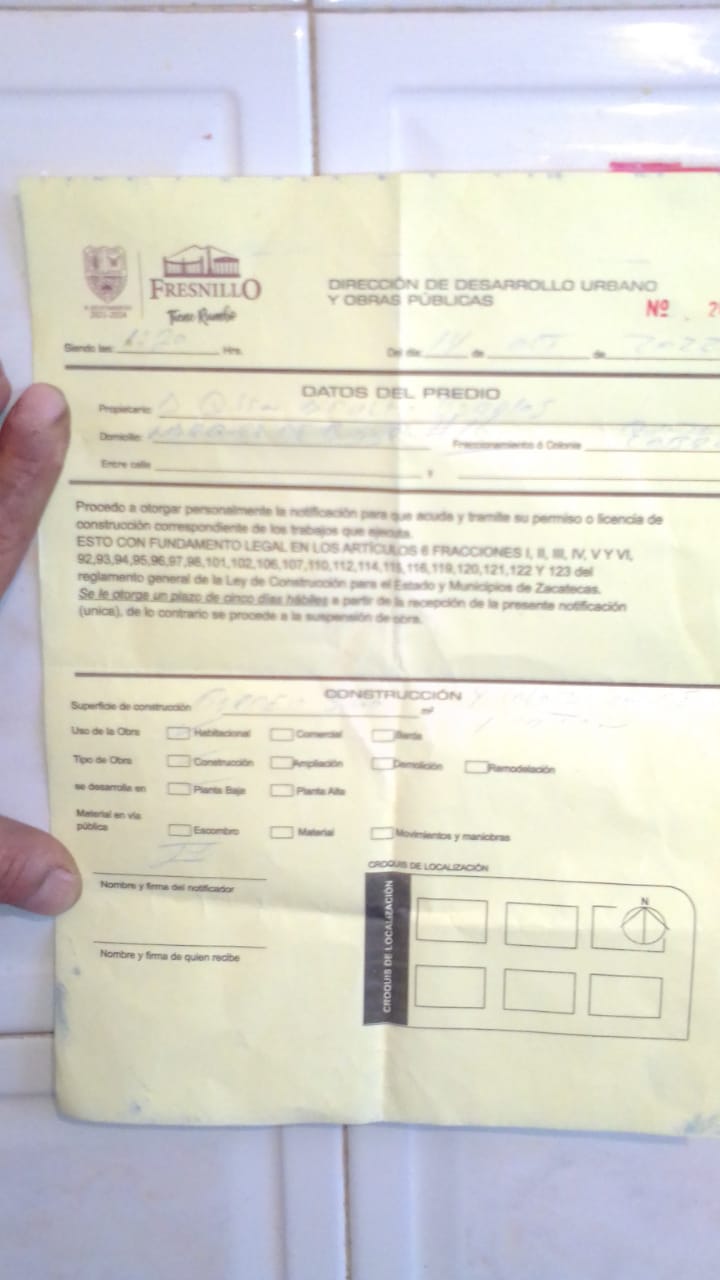 FRESNILLO
Tiene Rumbo
2021-2024
DIRECCIÓN DE DESARROLLO URBANO
Y OBRAS PÚBLICAS
Nº
Siendo las: Hrs. Del día: 14 de de
DATOS DEL PREDIO
Propietario:
Domicilio: Fraccionamiento ó Colonia
Entre calle y
Procedo a otorgar personalmente la notificación para que acuda y tramite su permiso o licencia de
construcción correspondiente de los trabajos que ejecuta.
ESTO CON FUNDAMENTO LEGAL EN LOS ARTÍCULOS 6 FRACCIONES I, II, III, IV, V Y VI,
92,93,94,95,96,97,98,101,102,106,107,110,112,114,115,116,119,120,121,122 Y 123 del
reglamento general de la Ley de Construcción para el Estado y Municipios de Zacatecas.
Se le otorga un plazo de cinco días hábiles a partir de la recepción de la presente notificación
(unica), de lo contrario se procede a la suspensión de obra.
CONSTRUCCIÓN
Superficie de construcción m²
Uso de la Obra Habitacional Comercial Barda
Tipo de Obra Construcción Ampliación Demolición Remodelación
se desarrolla en Planta Baja Planta Alta
Material en vía
pública Escombro Material Movimientos y maniobras
Nombre y firma del notificador
Nombre y firma de quien recibe
CROQUIS DE LOCALIZACIÓN
CROQUIS DE LOCALIZACIÓN
N